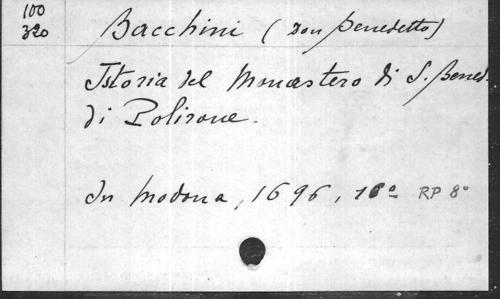 100
320
Bacchini (Don Benedetto)
Istoria del Monastero di S. Bened.
di Polirone.
In Modona, 1696, 16º RP 8º